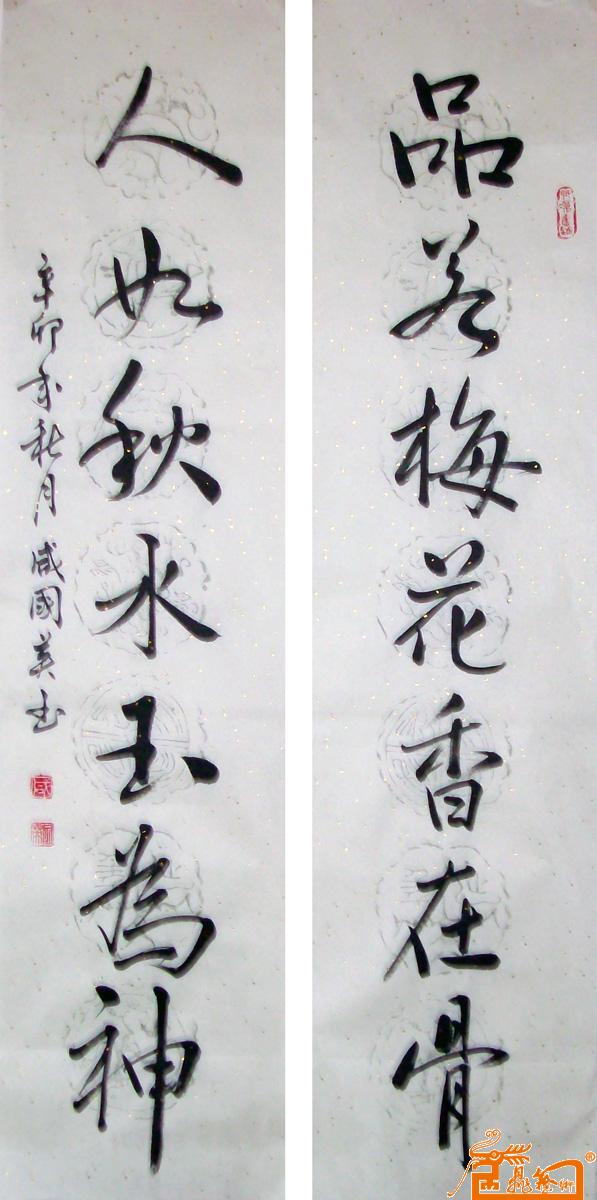 品若梅花香在骨
人如秋水玉为神
辛卯年秋月咸國英书